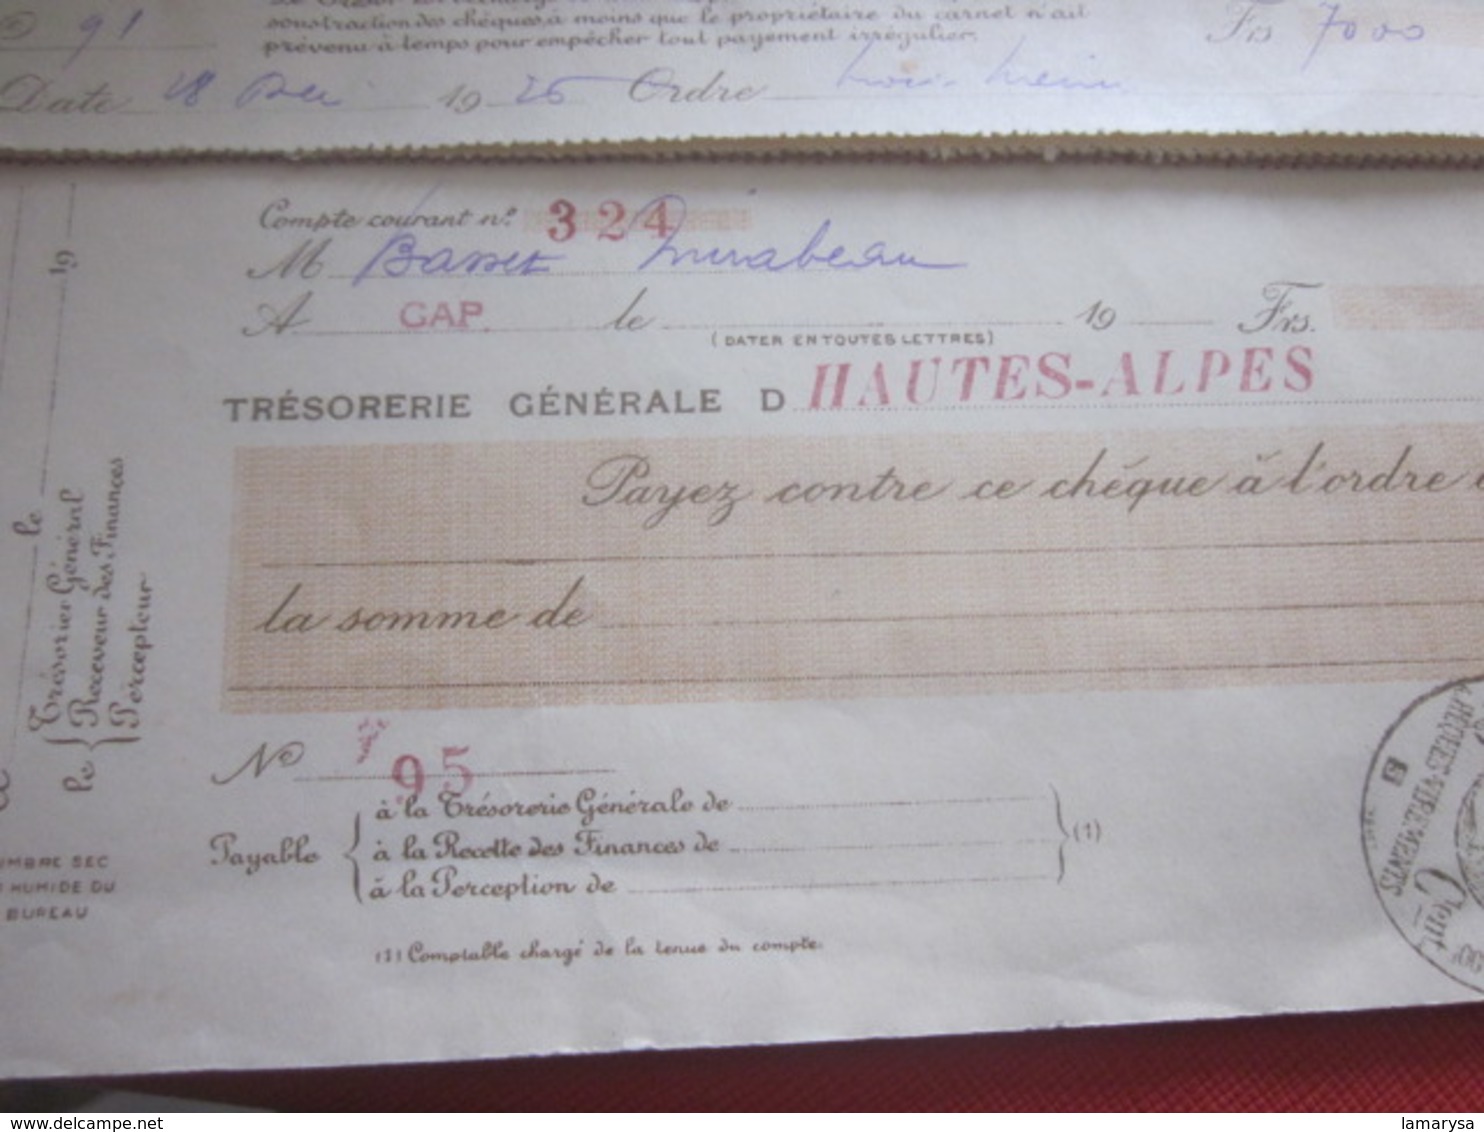 91
soustraction des chèques, à moins que le propriétaire du carnet n'ait
prévenu à temps pour empêcher tout payement irrégulier.
Frs 7000
Date 28 1926 Ordre
Compte courant n° 324
M Basset Mirabeau
A GAP. le 19 Frs.
(DATER EN TOUTES LETTRES)
TRÉSORERIE GÉNÉRALE D HAUTES-ALPES
Payez contre ce chéque à l'ordre
la somme de
N° 95
Payable
à la Trésorerie Générale de
à la Recette des Finances de
à la Perception de
(1)
(1) Comptable chargé de la tenue du compte.
le 19
le
Trésorier Général
Receveur des Finances
Percepteur
TIMBRE SEC
HUMIDE DU
BUREAU
CHÈQUES-VIREMENTS
delcampe.net
lamarysa